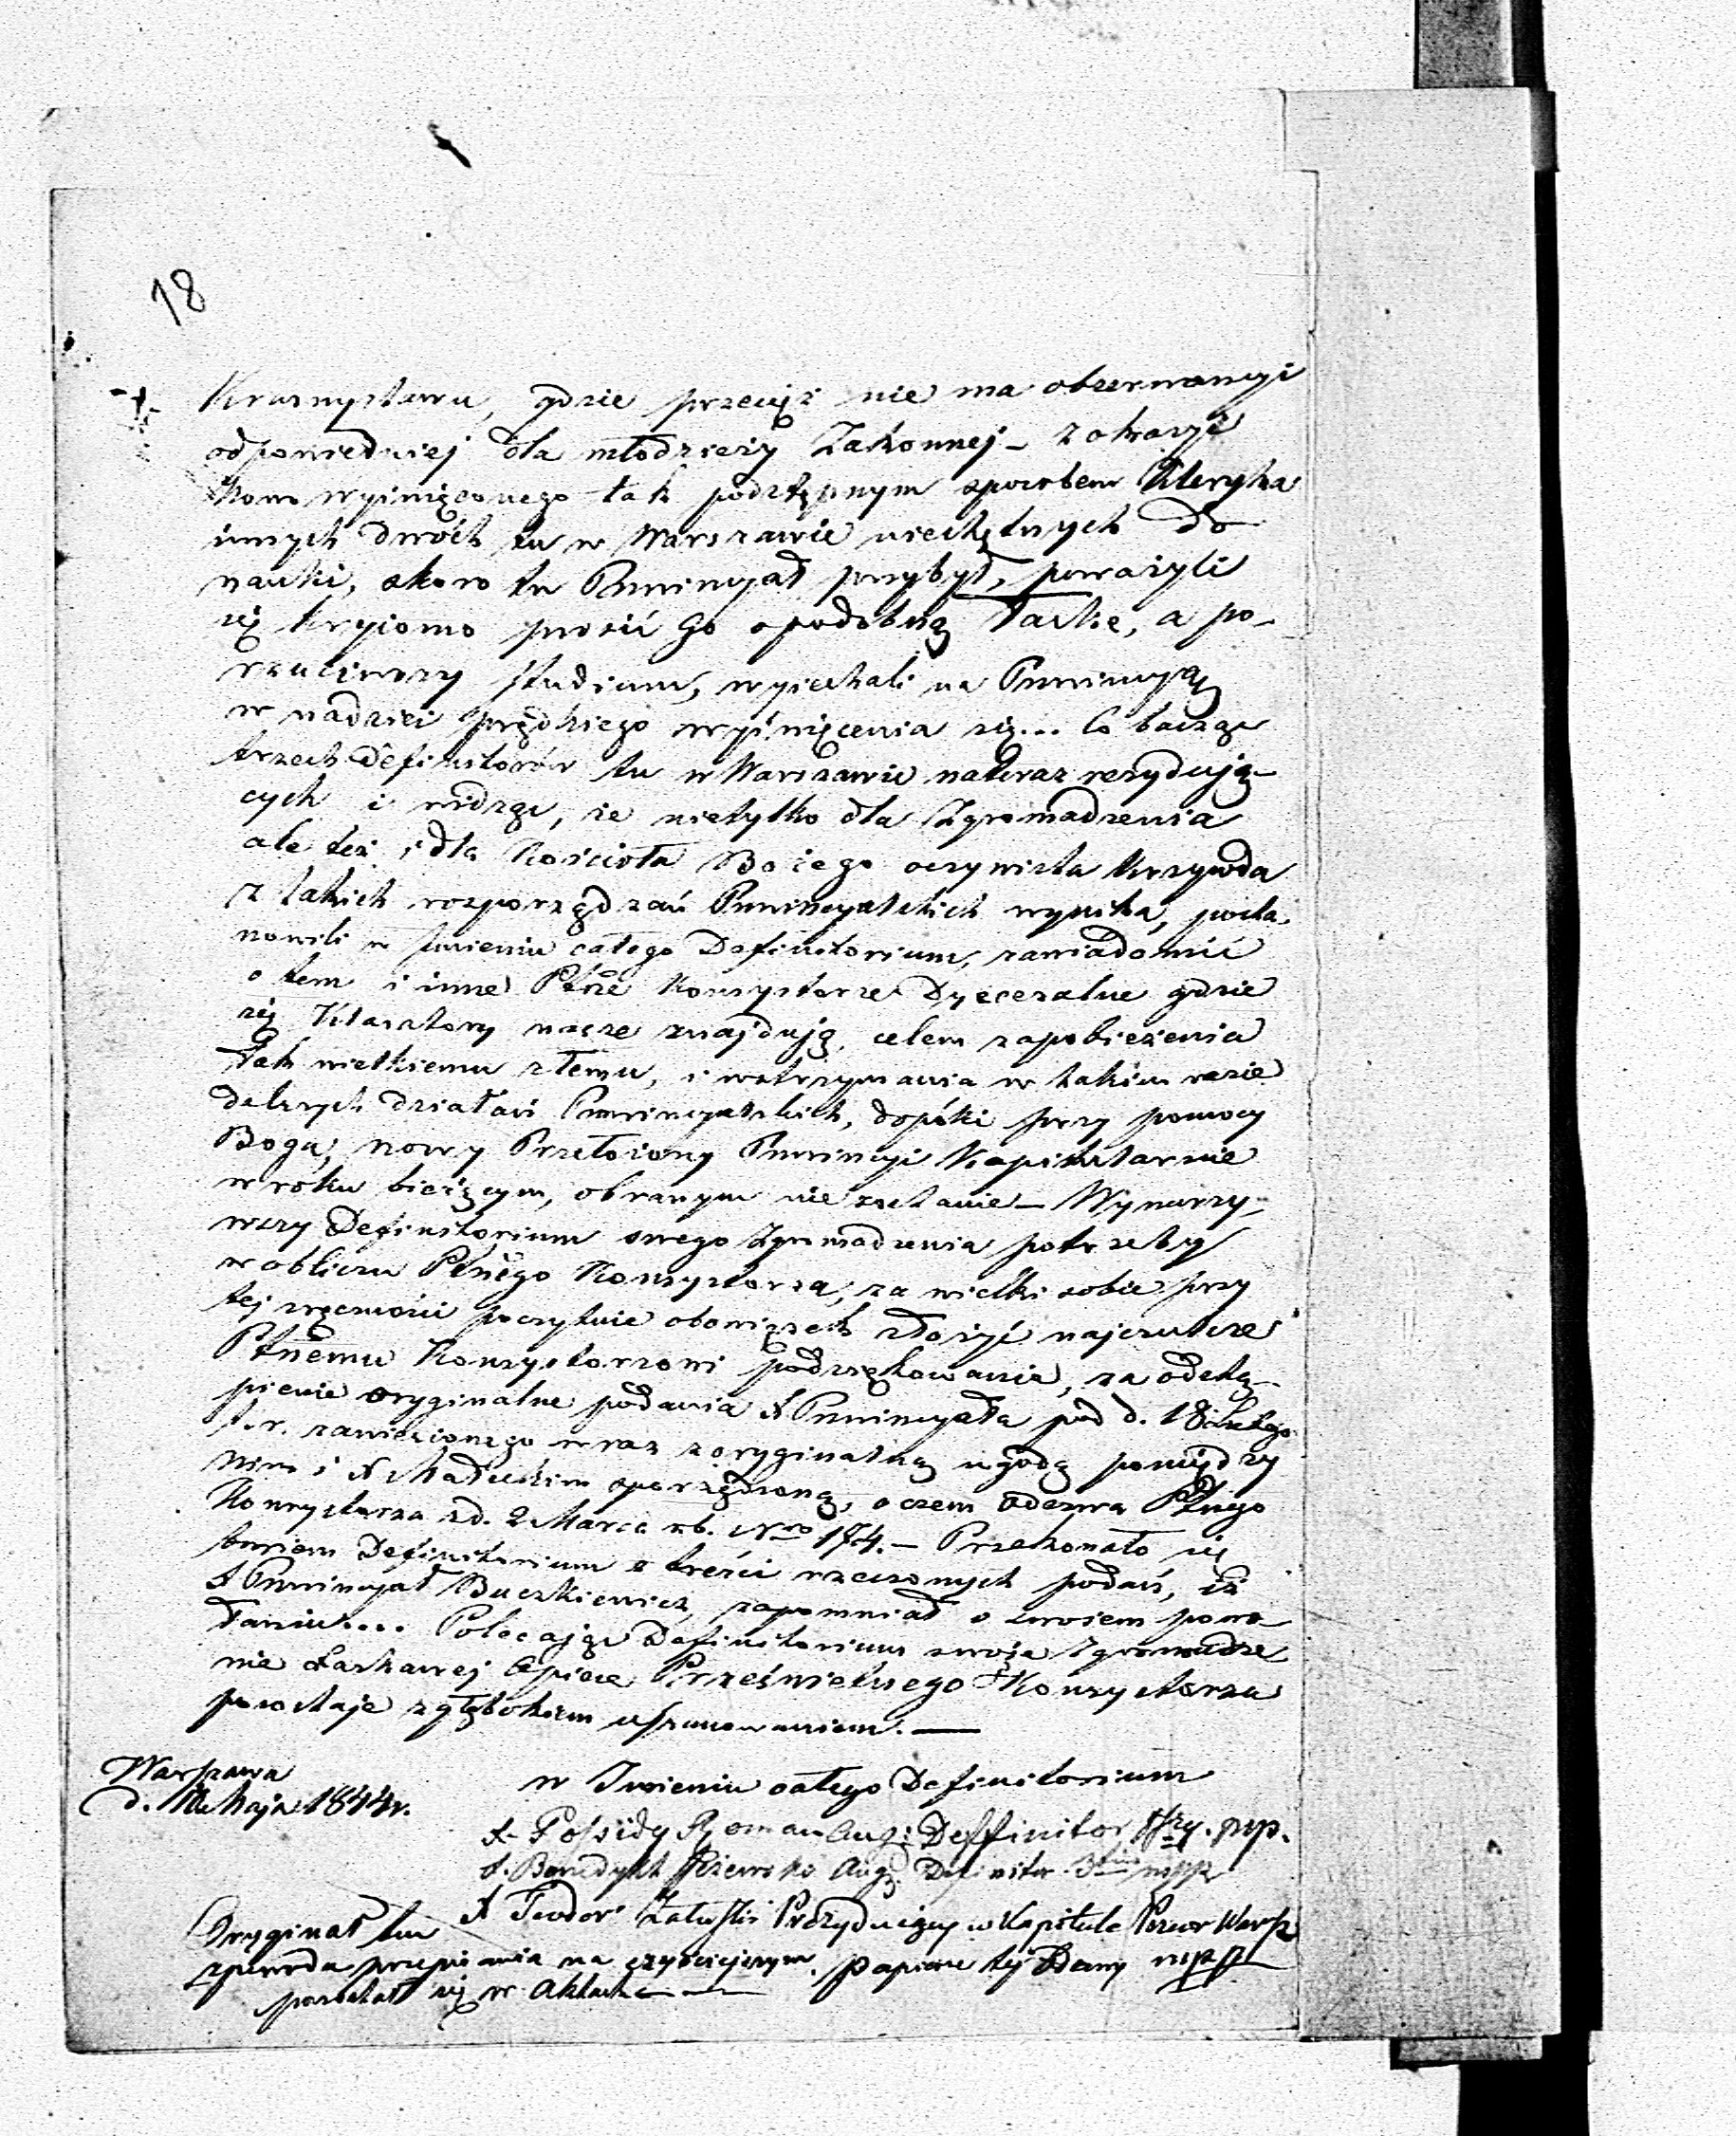 18
Krasnystawu, gdzie przecięż nie ma obserwancyi
odpowiedniej dla młodzieży Zakonnej – Z okazyi
nowo wyświęconego tak podstępnym sposobem Kleryka
innych dwóch tu w Warszawie niechętnych do
nauki, skoro tu Prowincyał przybył, poważyli
się kryiomo prosić go o podobną łaskę, a po-
rzuciwszy studium, wyiechali na Prowincyą
w nadziei prędkiego wyświęcenia się... Co bacząc
trzech Definitorów tu w Warszawie natenraz rezydują-
cych i widząc, że nietylko dla Zgromadzenia
ale też i dla Kościoła Bożego oczywista krzywda
z takich rozporządzań Prowincyalskich wynika, posta-
nowili w Imieniu całego Definitorium, zawiadomić
o tem i inne Ptne Konsystorze Dyecezalne gdzie
się Klasztory nasze znajdują, celem zapobieżenia
tak wielkiemu złemu, i wstrzymania w takim razie
dalszych działań Prowincyalskich, dopóki przy pomocy
Boga, nowy Przełożony Prowincyi Kapitularnie
w roku bieżącym, obranym nie zostanie – Wynurzy-
wszy Definitorium swego Zgromadzenia potrzeby
w obliczu Ptnego Konsystorza, za wielki sobie przy
tej zręczności poczytuie obowiązek złożyć najczulsze
Ptnemu Konsystorzowi podziękowanie, za odstą-
pienie oryginalne podania X Prowincyała pod d. 18 Lutego
t. r. zawiezionego wraz z oryginalną ugodą pomiędzy
Nim i X Małeckim sporządzoną, o czem Odezwa Ptnego
Konsystorza z d. 2 Marca rb. Nro 174. – Przekonało się
bowiem Definitorium z treści rzeczonych podań, iż
X Prowincyał Buczkiewicz, zapomniał o swoiem powo-
łaniu.... Polecając Definitorium swoje Zgromadze
nie łaskawej Opiece Prześwietnego Konsystorza
pozostaje z głębokiem uszanowaniem. —
Warszawa
d. Maja 1844 r.
w Imieniu całego Definitorium
X Possidy Roman Aug: Deffinitor mp.
X. Benedykt Aug. Definitor 3 mpp
X Teodor Załuski Prezyduiący w Kapitule Warsz
Oryginał ten
z powodu przepisania na czyściejszym papierze tej Odezwy mpp
pozostał się w Aktach —